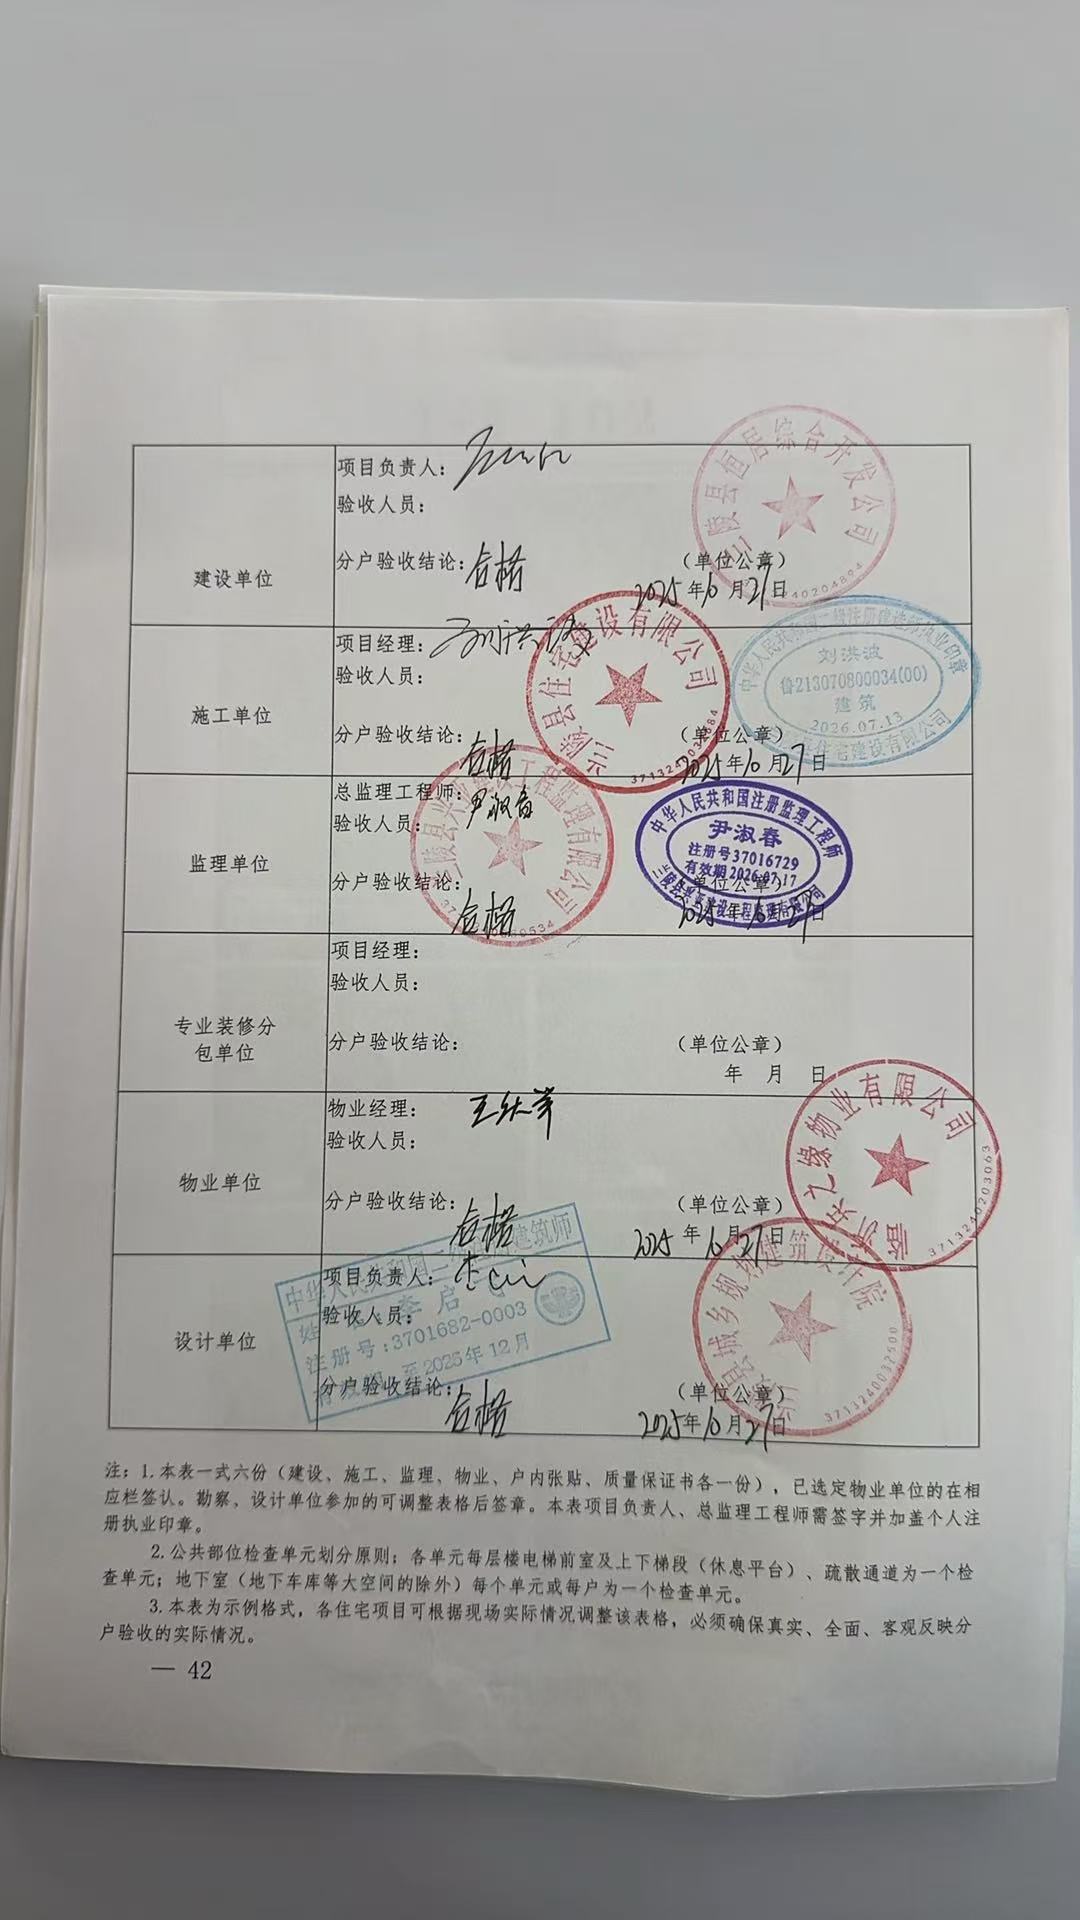 建设单位
项目负责人：
验收人员：
分户验收结论：合格
（单位公章）
2025年10月27日
兰陵县恒居综合开发公司
施工单位
项目经理：刘洪波
验收人员：
分户验收结论：合格
（单位公章）
2025年10月27日
兰陵县住宅建设有限公司
3713240032684
中华人民共和国二级注册建造师执业印章
刘洪波
鲁213070800034(00)
建筑
2026.07.13
住宅建设有限公司
监理单位
总监理工程师：尹淑春
验收人员：
分户验收结论：合格
（单位公章）
2025年10月27日
兰陵县兴业建设工程监理有限公司
中华人民共和国注册监理工程师
尹淑春
注册号37016729
有效期2026.07.17
兰陵县兴业建设工程监理有限公司
专业装修分
包单位
项目经理：
验收人员：
分户验收结论：
（单位公章）
年 月 日
物业单位
物业经理：
验收人员：
分户验收结论：合格
（单位公章）
2025年10月27日
物业有限公司
3713240203063
设计单位
项目负责人：
验收人员：
分户验收结论：合格
（单位公章）
2025年10月27日
县城乡规划建筑设计院
3713240032500
中华人民共和国二级注册建筑师
注册号：3701682-0003
至2025年12月
注：1.本表一式六份（建设、施工、监理、物业、户内张贴、质量保证书各一份），已选定物业单位的在相
应栏签认。勘察、设计单位参加的可调整表格后签章。本表项目负责人、总监理工程师需签字并加盖个人注
册执业印章。
2.公共部位检查单元划分原则：各单元每层楼电梯前室及上下梯段（休息平台）、疏散通道为一个检
查单元；地下室（地下车库等大空间的除外）每个单元或每户为一个检查单元。
3.本表为示例格式，各住宅项目可根据现场实际情况调整该表格，必须确保真实、全面、客观反映分
户验收的实际情况。
— 42